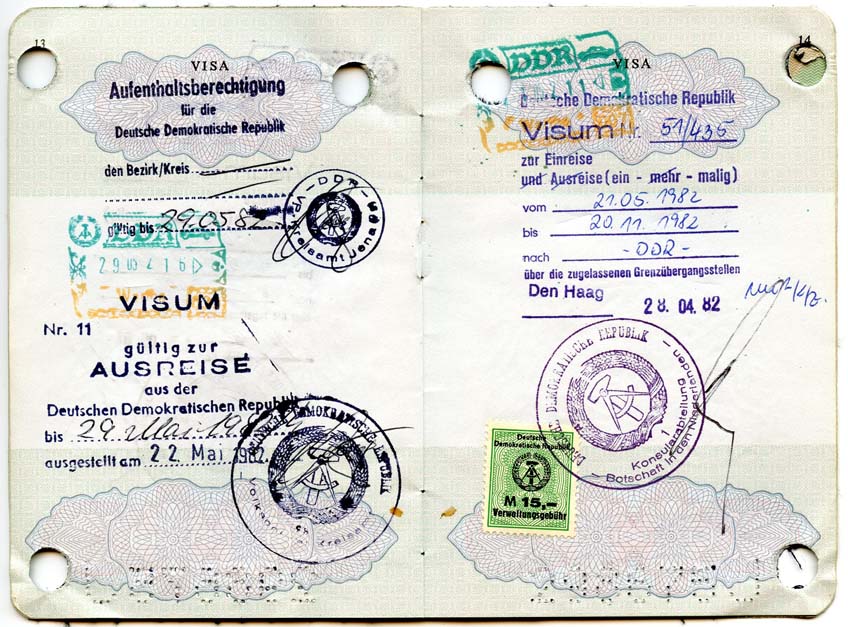 13
VISA
Aufenthaltsberechtigung
für die
Deutsche Demokratische Republik
den Bezirk/Kreis
gültig bis 29.05.82
- DDR -
VP Kreisamt Jena
DDR
29 05
VISUM
Nr. 11
gültig zur
AUSREISE
aus der
Deutschen Demokratischen Republik
bis 29. Mai 1982
ausgestellt am 22 Mai 1982
DEMOKRATISCHE REPUBLIK
14
VISA
DDR
Deutsche Demokratische Republik
Visum Nr. 51/435
zur Einreise
und Ausreise (ein - mehr - malig)
vom 21.05.1982
bis 20.11.1982
nach - DDR -
über die zugelassenen Grenzübergangsstellen
Den Haag
28. 04. 82
DEUTSCHE DEMOKRATISCHE REPUBLIK
1
Konsularabteilung
- Botschaft in den Niederlanden -
Deutsche
Demokratische Republik
M 15,-
Verwaltungsgebühr